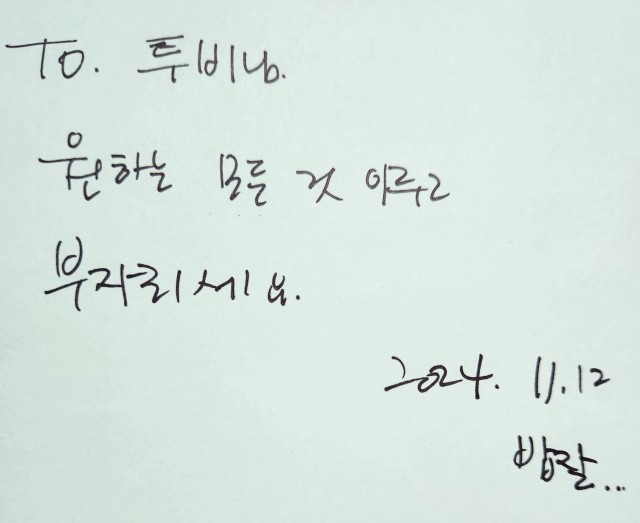 TO. 투비님.
원하는 모든 것 이루고
부자되세요.
2024. 11. 12
밥잘...